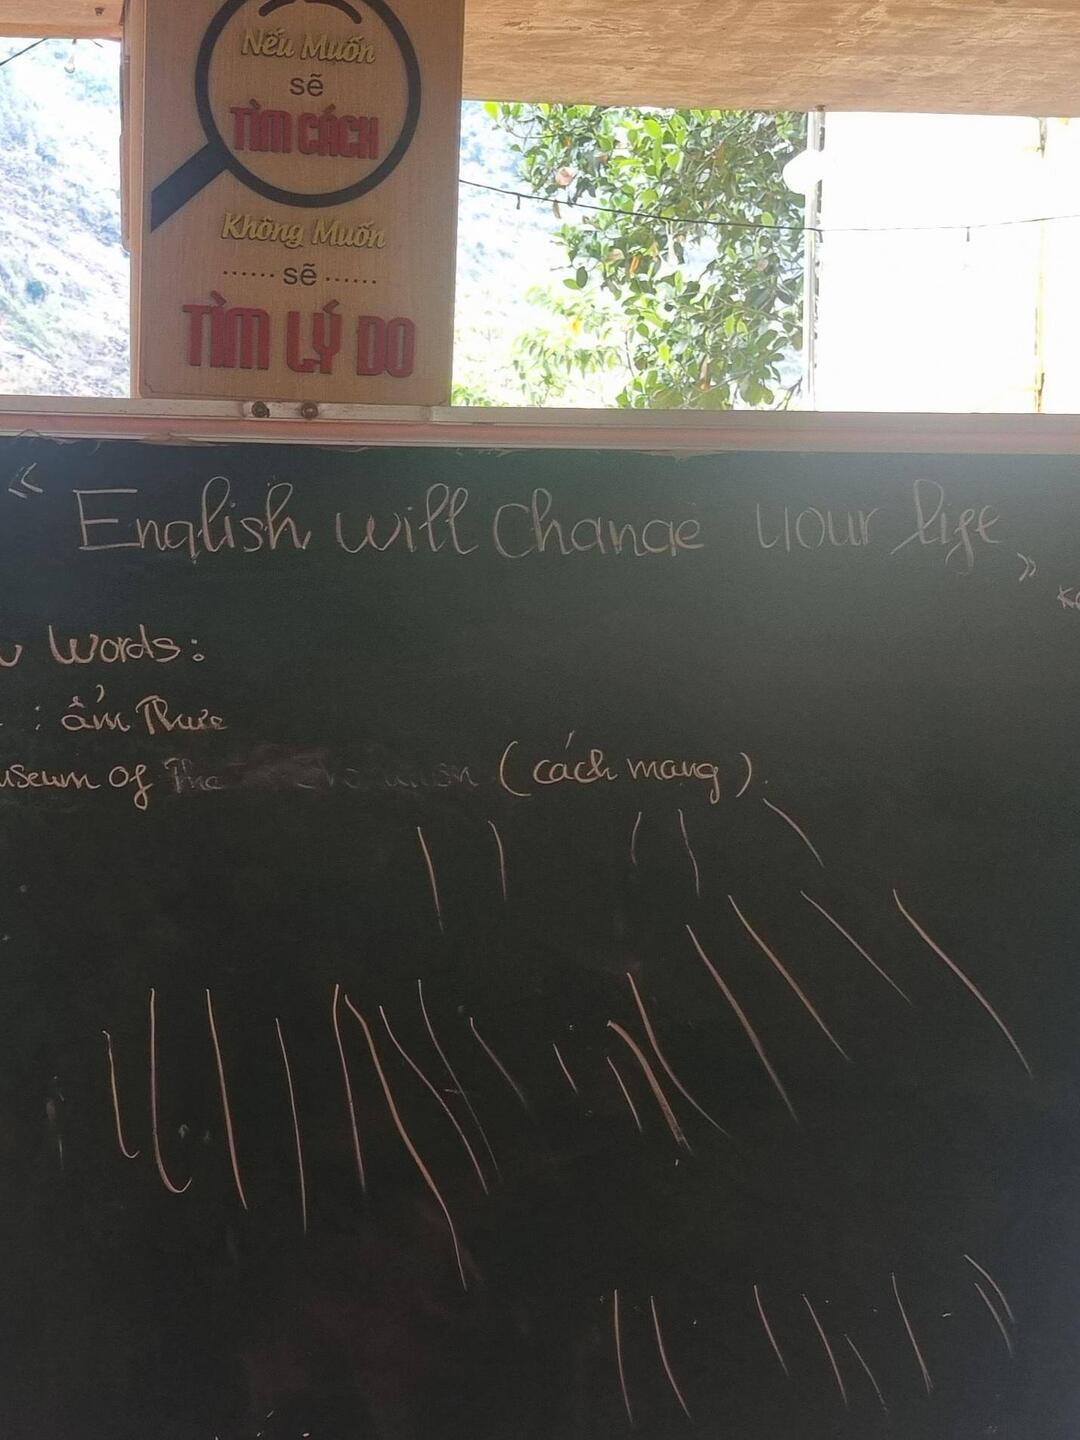 Nếu Muốn
sẽ
TÌM CÁCH
Không Muốn
...... sẽ ......
TÌM LÝ DO
« English will change your life »
Words:
: ẩm Thực
of The (cách mạng).